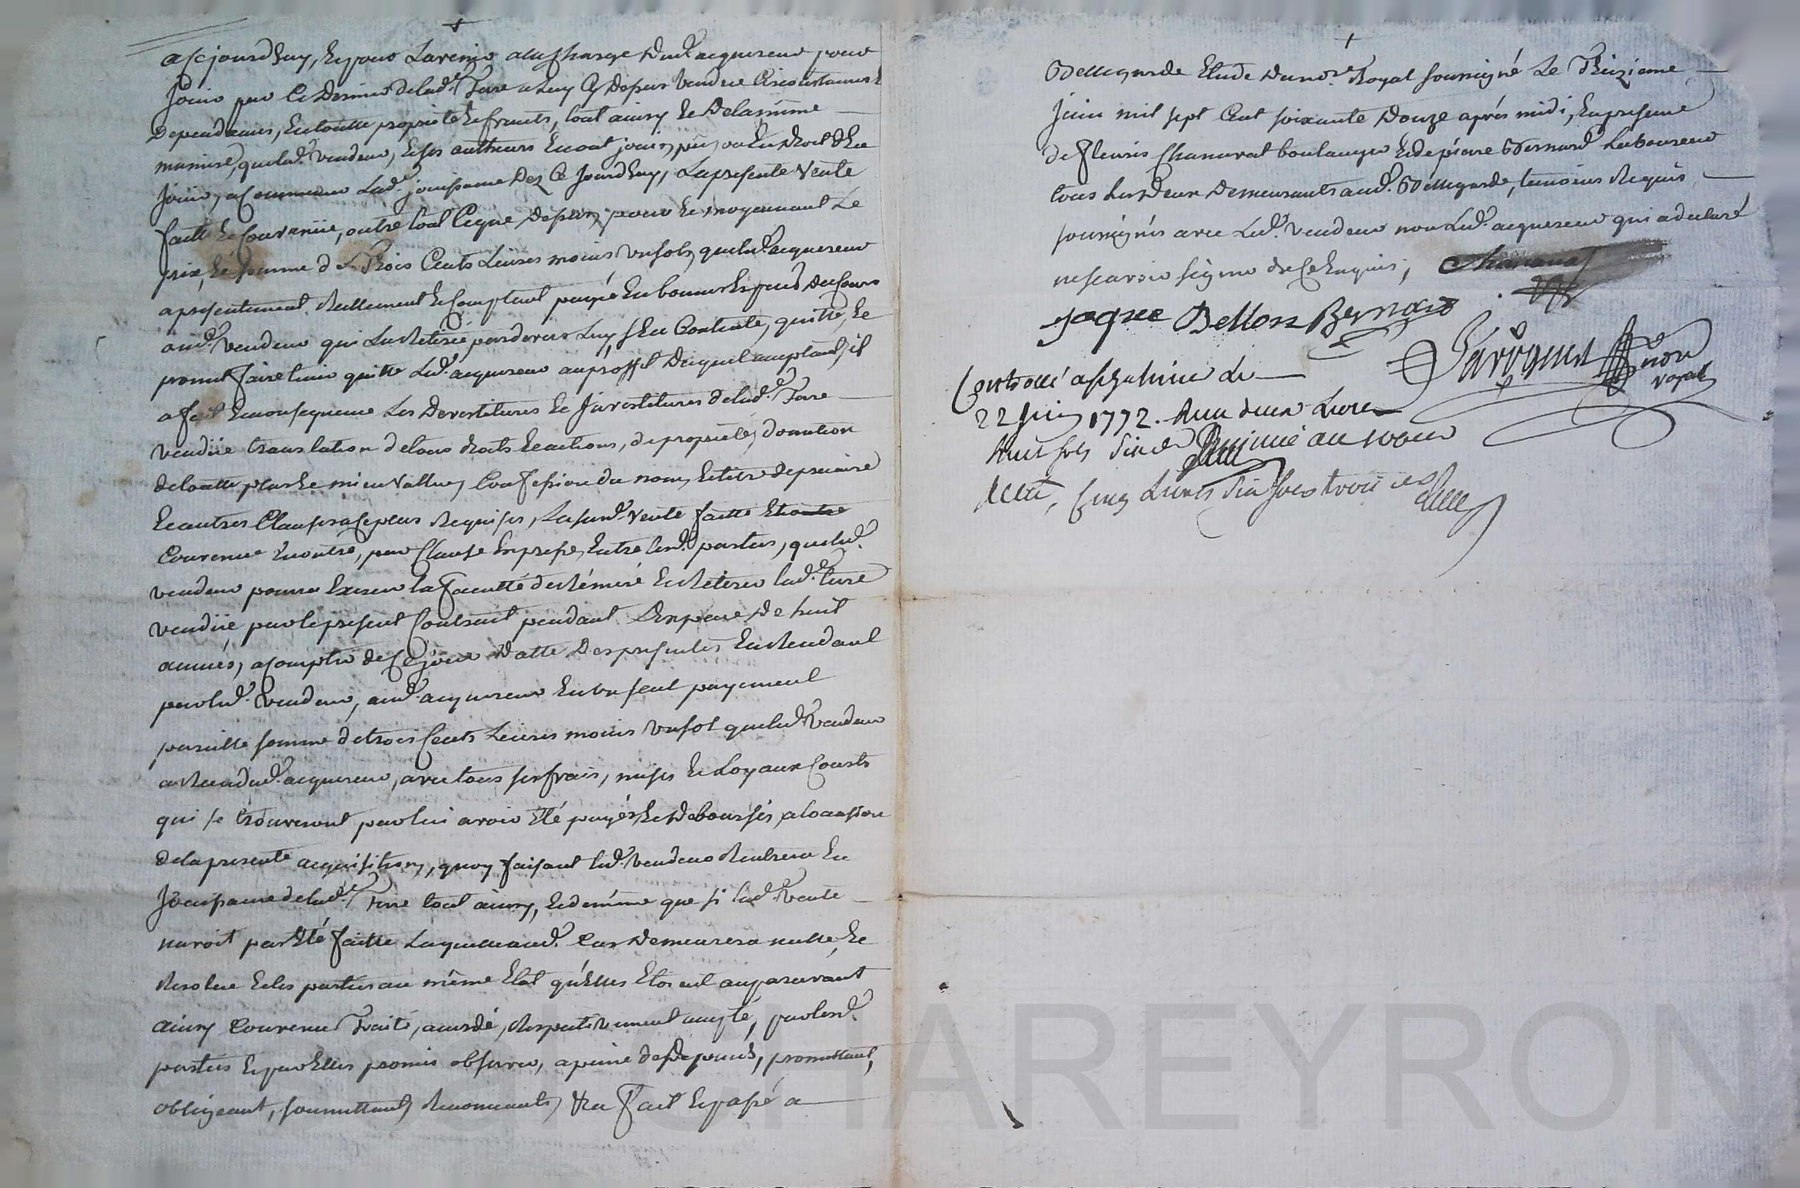 a ce jourdhuy, et pour Lavenir a la charge dud.t acquereur pour
Jouir par ce Dernier de lad.e Terre a Luy cy Depuis Vendue Circonstances
Dependances, en toutte proprieté et fruits, tout ainsy et De la même
maniere, que led.t Vendeur, et ses autheurs en ont jouis, pû, ou eu droit d'en
Jouir, a Commencer Lad.e jouissance Dez Ce Jourd'huy, La presente Vente
faitte et Convenüe, outre tout Ceque Dessus, pour et moyennant Le
prix, et somme de Trois Cents Livres moins un sol, que led.t acquereur
a presentement Reellement et Comptant payée en bonnes Especes du Cours
aud.t Vendeur qui La Retirée pardevers Luy s'En Contente, quitte, et
promet faire tenir quitte Led.t acquereur au proffit Duquel acceptant, il
a fait en consequence Les Devestitures et Investitures de lad.e Terre
Vendüe translation de tous droits et actions, de proprieté, donation
de toutte plus et mieux Vallue, Confession du nom, et titre de precaire
et autres Clauses a ce plus Requises, La sus.d Vente faitte
Convenue en outre, par Clause Expresse, entre lesd. parties, que led.t
vendeur pourra Exercer la Faculté de Réméré et Retirer lad.e terre
Vendüe par le present Contrait pendant L'espace De huit
années, a Compter de Ce jour Datte Des presentes En Rendant
par led.t Vendeur, aud.t acquereur En un seul payement
pareille somme de trois Cents Livres moins un sol que led.t Vendeur
a Rendu aud.t acquereur, avec tous ses frais, mises et Loyaux Cousts
qui se trouveront par lui avoir Eté payés, et Deboursés, a l'ocasion
de la presente acquisition, quoy faisant led.t Vendeur Rentrera En
Jouissance de lad.e Terre tout ainsy, et de même que si lad.e Vente
n'avoit pas Eté faitte Laquelle aud.t Cas Demeurera nulle, et
Resolue et les parties au même Etat qu'Elles Etoient auparavant
ainsy Convenu Traité, acordé, Respectivement accepté, par lesd.
parties et par Elles promis observer, a peine de Depens, promettant,
obligeant, soumettant, Renonceants, &c Fait et passé a
Bellegarde Etude Du no.re Royal soussigné Le Treizieme
Juin mil sept Cent soixante Douze après midi, En presence
de fleuris Chanavat boulanger et de pierre Bernard Laboureur
tous Les Deux Demeurants aud.t Bellegarde, temoins Requis
soussignés avec Led.t Vendeur non Led.t acquereur qui a declaré
ne scavoir signer de Ce Enquis,
Chanavat
jaques Bernard
no.re
royal
Controllé Le
22 Juin 1772. Reçu deux Livres
huit sols Six d.
Cinq Livres Six sols trois